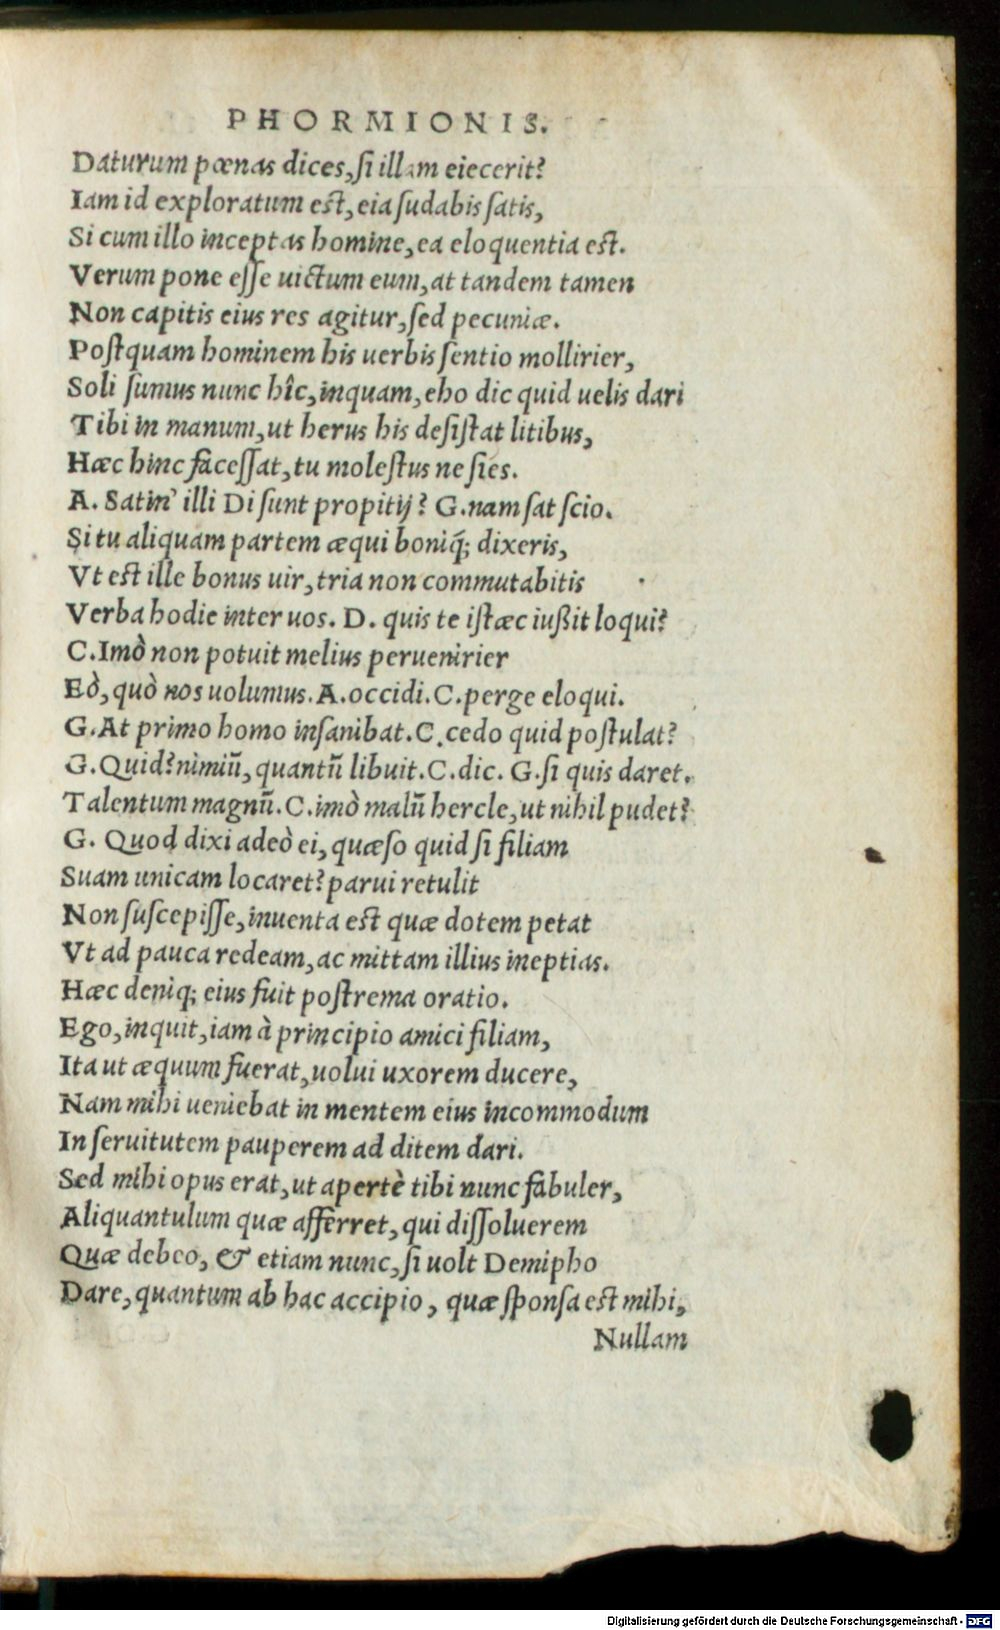 PHORMIONIS.
Daturum pœnas dices, ſi illam eiecerit?
Iam id exploratum eſt, eia ſudabis ſatis,
Si cum illo inceptas homine, ea eloquentia eſt.
Verum pone eſſe uictum eum, at tandem tamen
Non capitis eius res agitur, ſed pecuniæ.
Poſtquam hominem his uerbis ſentio mollirier,
Soli ſumus nunc hîc, inquam, eho dic quid uelis dari
Tibi in manum, ut herus his deſiſtat litibus,
Hæc hinc faceſſat, tu moleſtus ne ſies.
A. Satin' illi Di ſunt propitij? G. nam ſat ſcio.
Si tu aliquam partem æqui boniq́; dixeris,
Vt eſt ille bonus uir, tria non commutabitis
Verba hodie inter uos. D. quis te iſtæc iußit loqui?
C. Imò non potuit melius peruenirier
Eò, quò nos uolumus. A. occidi. C. perge eloqui.
G. At primo homo inſanibat. C. cedo quid poſtulat?
G. Quid? nimiũ, quantũ libuit. C. dic. G. ſi quis daret.
Talentum magnũ. C. imò malũ hercle, ut nihil pudet?
G. Quod dixi adeò ei, quæſo quid ſi filiam
Suam unicam locaret? parui retulit
Non ſuſcepiſſe, inuenta eſt quæ dotem petat
Vt ad pauca redeam, ac mittam illius ineptias.
Hæc deniq; eius fuit poſtrema oratio.
Ego, inquit, iam à principio amici filiam,
Ita ut æquum fuerat, uolui uxorem ducere,
Nam mihi ueniebat in mentem eius incommodum
In ſeruitutem pauperem ad ditem dari.
Sed mihi opus erat, ut apertè tibi nunc fabuler,
Aliquantulum quæ afferret, qui diſſoluerem
Quæ debeo, & etiam nunc, ſi uolt Demipho
Dare, quantum ab hac accipio, quæ ſponſa eſt mihi,
Nullam
Digitalisierung gefördert durch die Deutsche Forschungsgemeinschaft - DFG